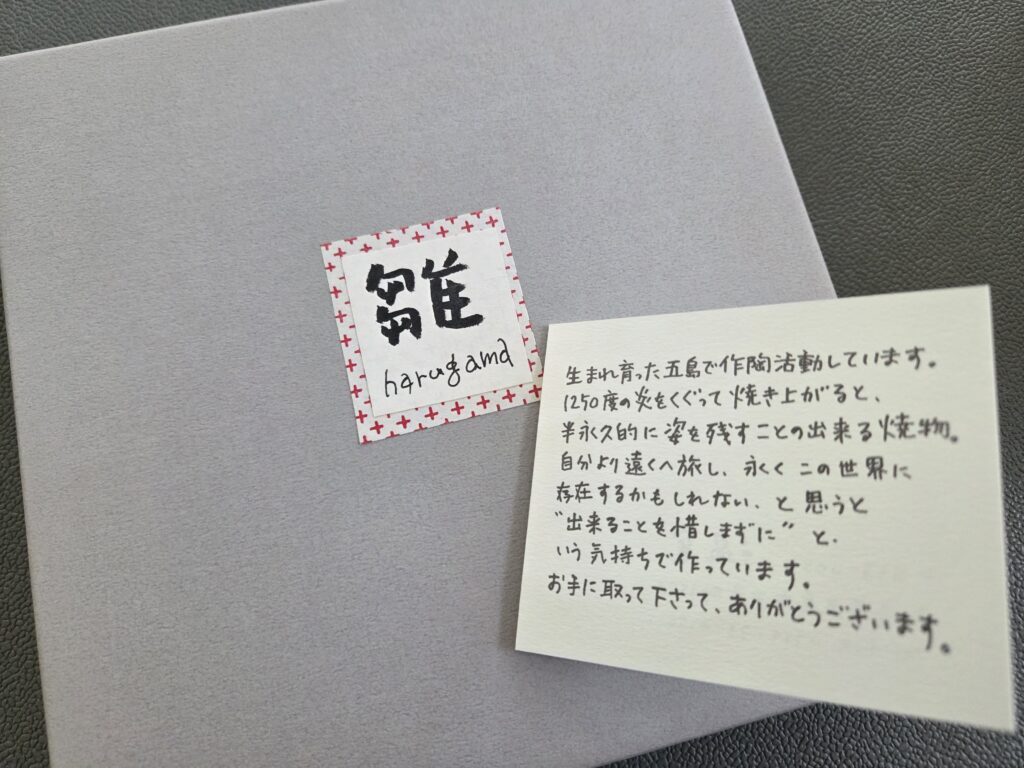 雛
harugama
生まれ育った五島で作陶活動しています。
1250度の炎をくぐって焼き上がると、
半永久的に姿を残すことの出来る焼物。
自分より遠くへ旅し、永くこの世界に
存在するかもしれない、と思うと
"出来ることを惜しまずに"と、
いう気持ちで作っています。
お手に取って下さって、ありがとうございます。